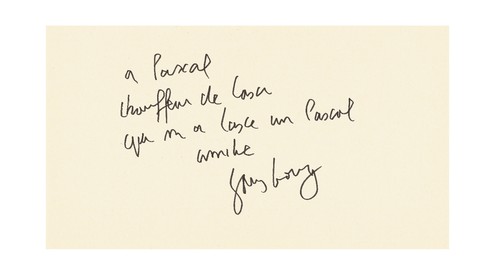 a Pascal
chauffeur de
qui m a un Pascal
amitié
Gainsbourg